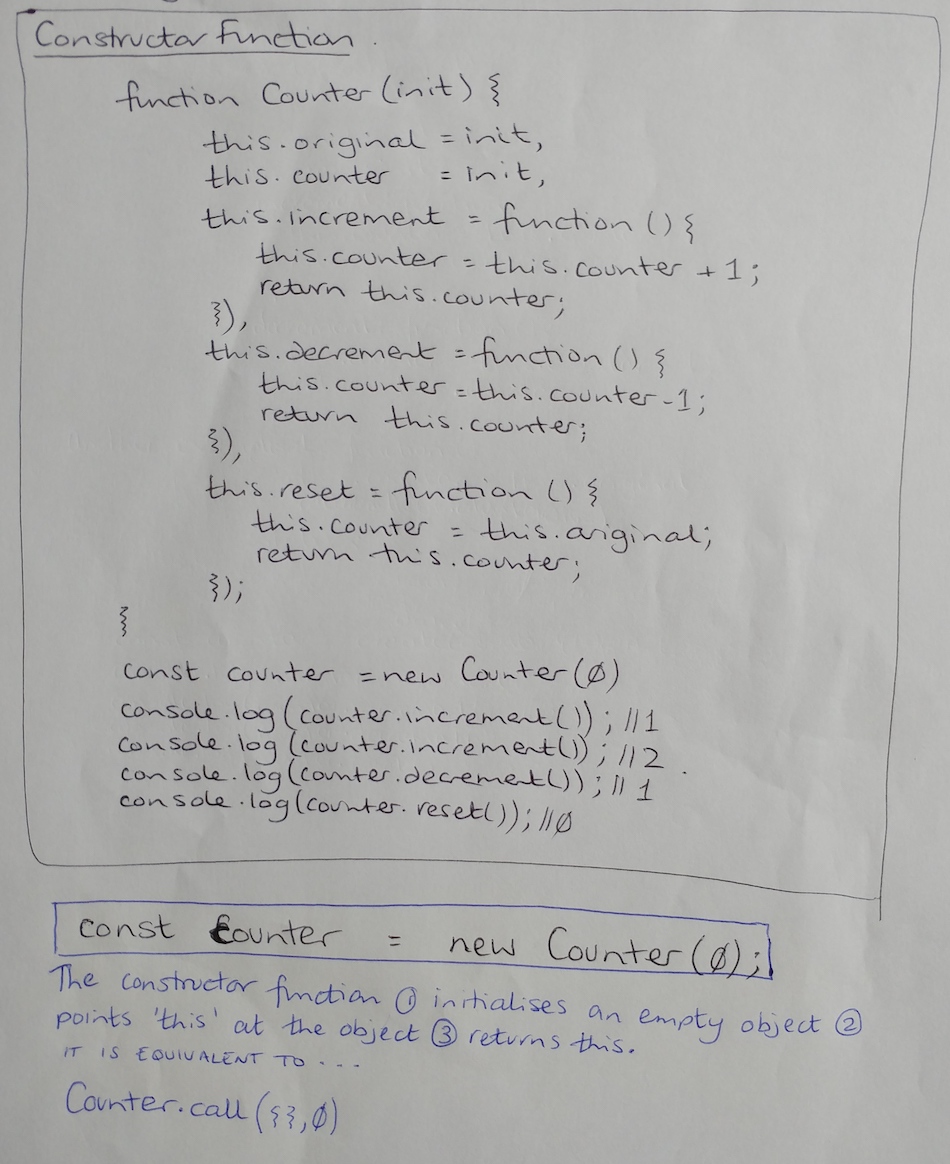 Constructor Function.
function Counter (init) {
this.original = init,
this.counter = init,
this.increment = function () {
this.counter = this.counter + 1;
return this.counter;
}),
this.decrement = function () {
this.counter = this.counter - 1;
return this.counter;
}),
this.reset = function () {
this.counter = this.original;
return this.counter;
});
}
const counter = new Counter (0)
console.log (counter.increment()); //1
console.log (counter.increment()); //2
console.log (counter.decrement()); //1
console.log (counter.reset()); //0
const Counter = new Counter (0);
The constructor function ① initialises an empty object ②
points 'this' at the object ③ returns this.
IT IS EQUIVALENT TO ...
Counter.call ({}, 0)